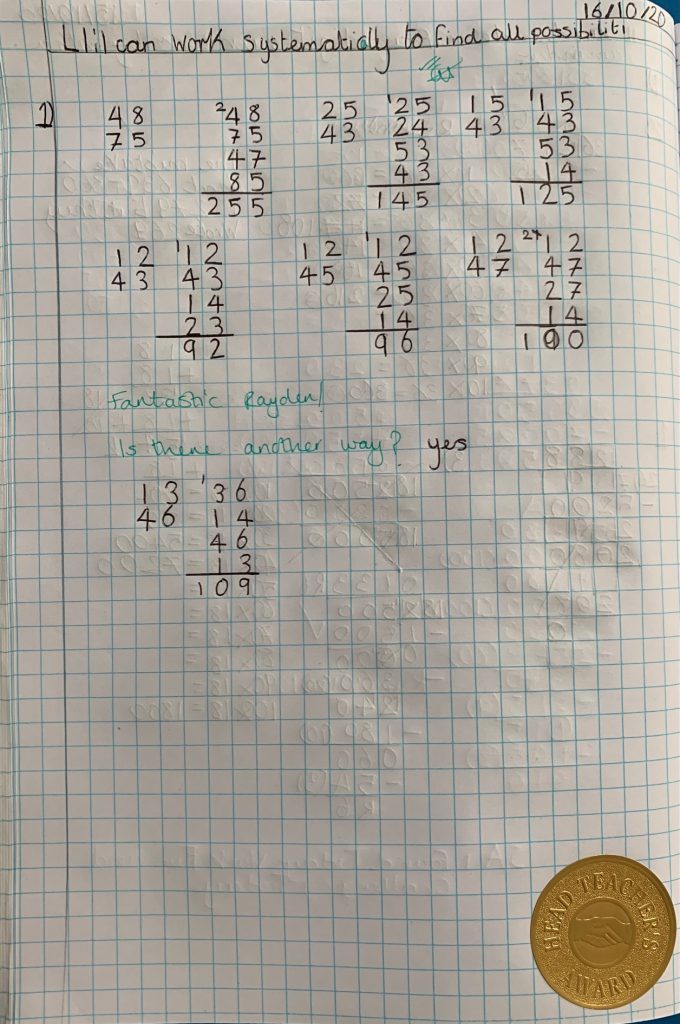 16/10/20
LI: I can work systematiclly to find all possibiliti
1) 48 ²48 25 '25 15 '15
75 75 43 24 43 43
47 53 53
85 43 14
255 145 125
12 '12 12 '12 12 12
43 43 45 45 47 47
14 25 27
23 14 14
92 96 100
Fantastic Rayden!
Is there another way? yes
13 '36
46 14
46
13
109
HEAD TEACHER'S
AWARD